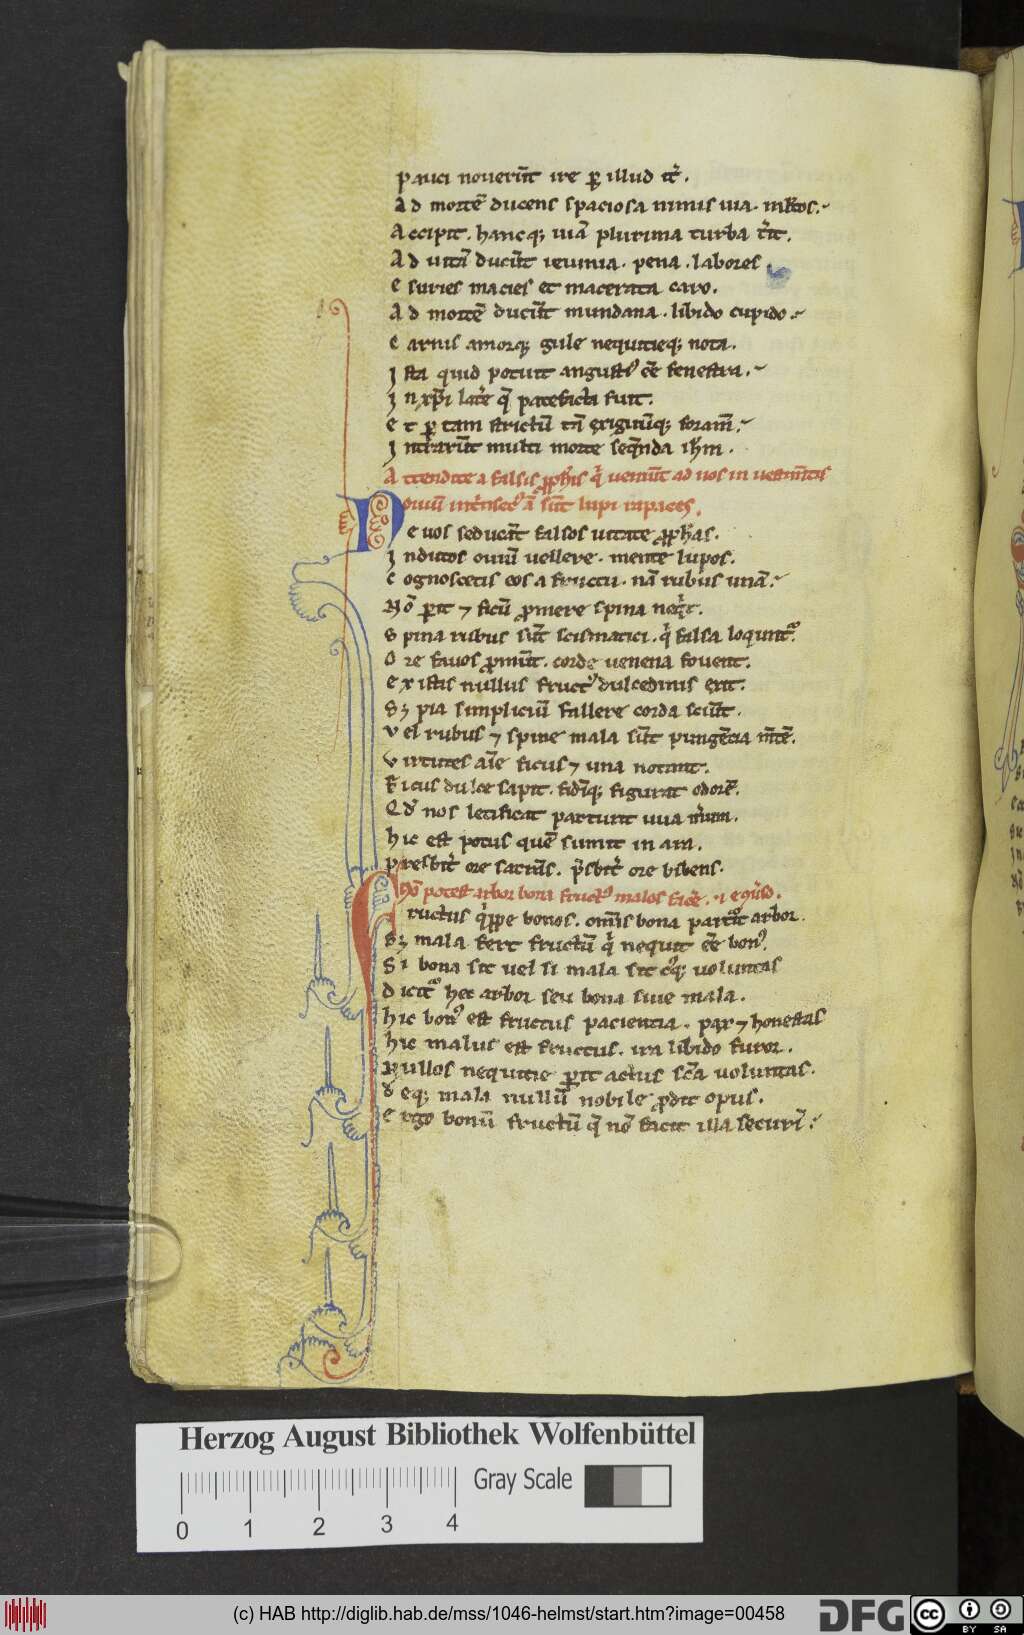 Pauci noueru̅t ire p̱ illud it͛.
Ad morte̅ ducens spaciosa nimis uia. m̅ltos.
Accipit. hancq; uia̅ plurima turba t͛it.
Ad uita̅ ducu̅t ieiunia. pena. labores.
Esuries macies et macerata caro.
Ad morte̅ ducu̅t mundana. libido cupido.
Carnis amorq; gule nequitieq; nota.
Ista quid potuit angustiꝰ e̅e fenestra.
In xp̅i late͛ q̅ patefacta fuit.
Et p̱ tam strictu̅ ta̅ exiguu̅q; foram̅.
Intraru̅t multi morte seq̅nda ih̅m.
Attendite a falsis ꝓph̅is qͥ ueniu̅t ad uos in uestim̅tis
ouiu̅ int͛nsecꝰ a̅ su̅t lupi rapaces.
Ne uos seduca̅t falsos uitate ꝓph̅as.
Indutos ouiu̅ uellere. mente lupos.
Cognoscetis eos a fructu. na̅ rubus uua̅.
No̅ parit ⁊ ficu̅ promere spina neqͥt.
Spina rubus su̅t scismatici. qͥ falsa loqunt᷑.
Ore fauos promu̅t. corde uenena fouent.
Ex istis nullus fructꝰ dulcedinis erit.
Sꝫ pia simpliciu̅ fallere corda sciu̅t.
Vel rubus ⁊ spine mala su̅t punge̅cia m̅te̅.
Virtutes ai̅e ficus ⁊ uua notant.
Ficus dulce sapit. fide̅q; figurat odore̅.
Qd̕ nos letificat parturit uua m͛um.
Hic est potus que̅ sumit in ara.
Presbit͛ ore sacri̅s. p̅sbit͛ ore bibens.
No̅ potest arbor bona fructꝰ malos fac͛e. ⁊ eq͛so.
Fructus qͥppe bonos. omi̅s bona parit᷑ arbor.
Sꝫ mala fert fructu̅ qͥ nequit e̅e bonꝰ.
Si bona sit uel si mala sit cꝰq; uoluntas
Dicit᷑ hec arbor seu bona siue mala.
Hic bonꝰ est fructus paciencia. pax ⁊ honestas
Hic malus est fructus. ira libido furor.
Nullos nequitie parit actus sc̅a uoluntas.
Deq; mala nullu̅ nobile prodit opus.
Ergo bonu̅ fructu̅ q̅ no̅ facit illa securi̅.
Herzog August Bibliothek Wolfenbüttel
Gray Scale
0 1 2 3 4
(c) HAB http://diglib.hab.de/mss/1046-helmst/start.htm?image=00458
DFG
cc BY SA